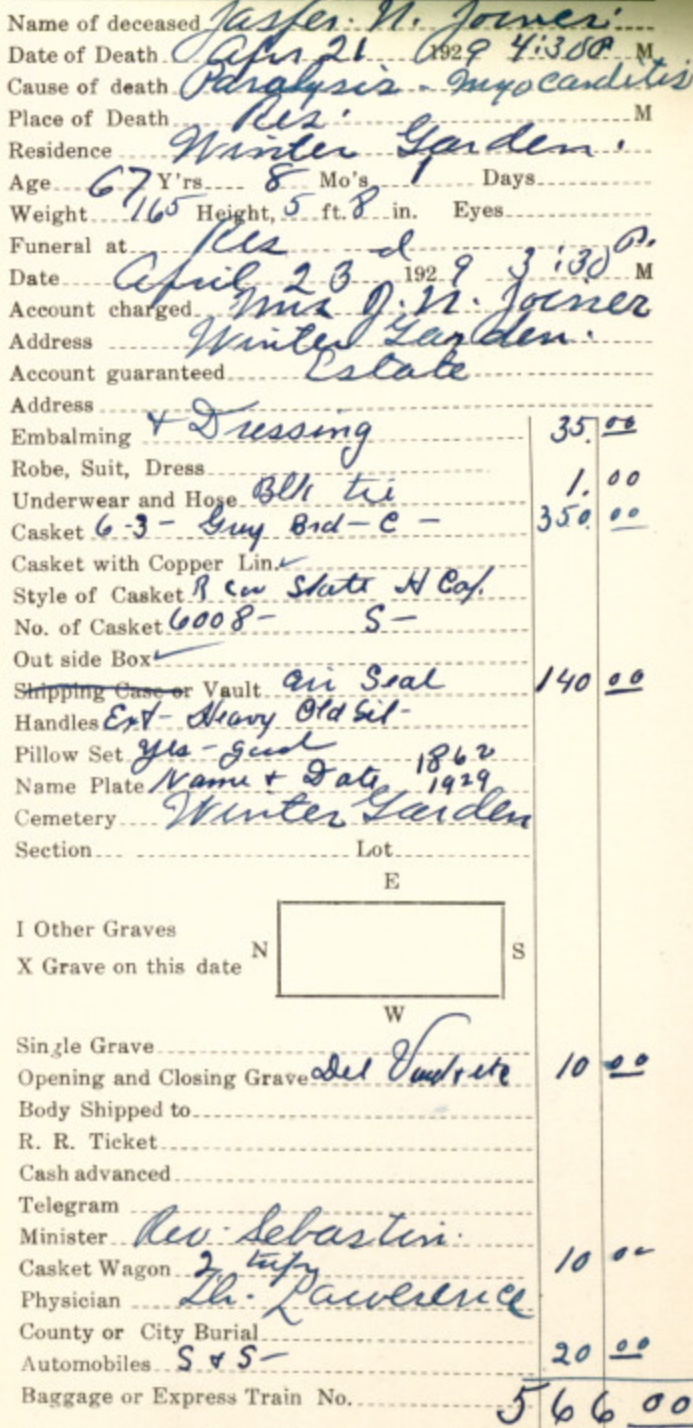 Name of deceased Jasper. N. Joiner.
Date of Death Apr 21 1929 4:30P M
Cause of death Paralysis - myocarditis
Place of Death Res. M
Residence Winter Garden.
Age 67 Y'rs 8 Mo's 1 Days
Weight 165 Height, 5 ft. 8 in. Eyes
Funeral at Res
Date April 23 1929 3:30 P. M
Account charged Mrs J. N. Joiner
Address Winter Garden.
Account guaranteed Estate
Address
Embalming + Dressing 35.00
Robe, Suit, Dress
Underwear and Hose Blk tie 1.00
Casket 6-3 - Grey Brd - C - 350.00
Casket with Copper Lin. ✓
Style of Casket State H Cap.
No. of Casket 6008- S-
Out side Box ✓
Shipping Case or Vault air Seal 140 00
Handles Ext - Heavy Old Sil -
Pillow Set yes - good 1862
Name Plate Name + Date 1929
Cemetery Winter Garden
Section Lot
E
I Other Graves
N S
X Grave on this date
W
Single Grave
Opening and Closing Grave Del Vault etc 10 00
Body Shipped to
R. R. Ticket
Cash advanced
Telegram
Minister Rev. Sebastin.
Casket Wagon 2 trips 10 00
Physician Dr. Lawerence
County or City Burial
Automobiles S & S - 20 00
Baggage or Express Train No. 566 00